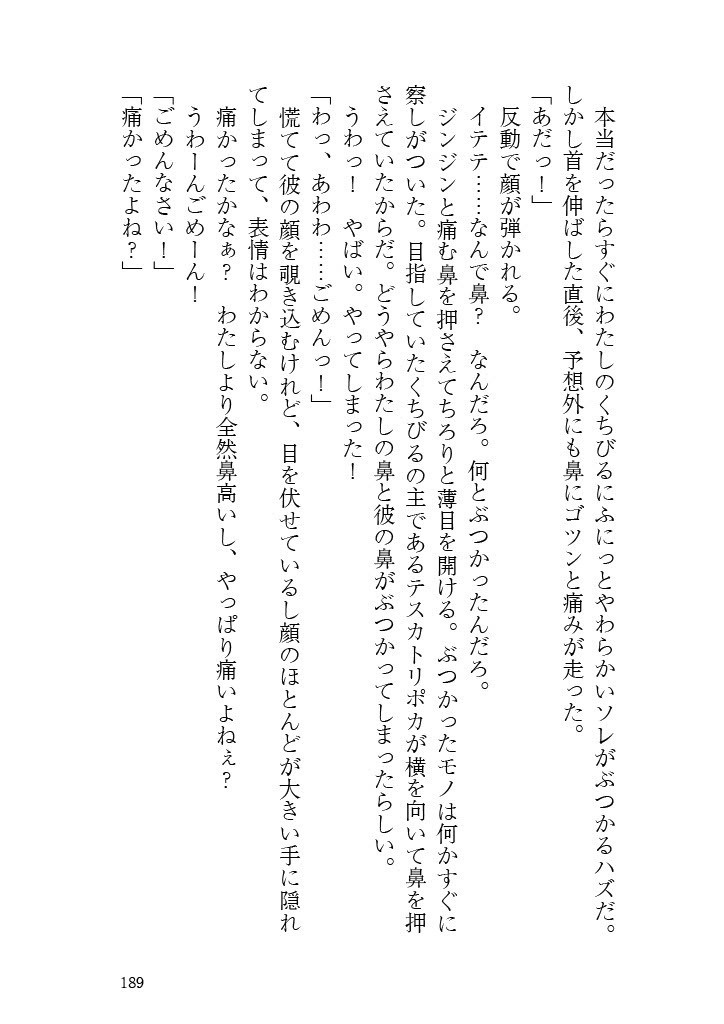 本当だったらすぐにわたしのくちびるにふにっとやわらかいソレがぶつかるハズだ。
しかし首を伸ばした直後、予想外にも鼻にゴツンと痛みが走った。
「あだっ！」
　反動で顔が弾かれる。
　イテテ……なんで鼻？　なんだろ。何とぶつかったんだろ。
　ジンジンと痛む鼻を押さえてちろりと薄目を開ける。ぶつかったモノは何かすぐに
察しがついた。目指していたくちびるの主であるテスカトリポカが横を向いて鼻を押
さえていたからだ。どうやらわたしの鼻と彼の鼻がぶつかってしまったらしい。
　うわっ！　やばい。やってしまった！
「わっ、あわわ……ごめんっ！」
　慌てて彼の顔を覗き込むけれど、目を伏せているし顔のほとんどが大きい手に隠れ
てしまって、表情はわからない。
　痛かったかなぁ？　わたしより全然鼻高いし、やっぱり痛いよねぇ？
　うわーんごめーん！
「ごめんなさい！」
「痛かったよね？」
189